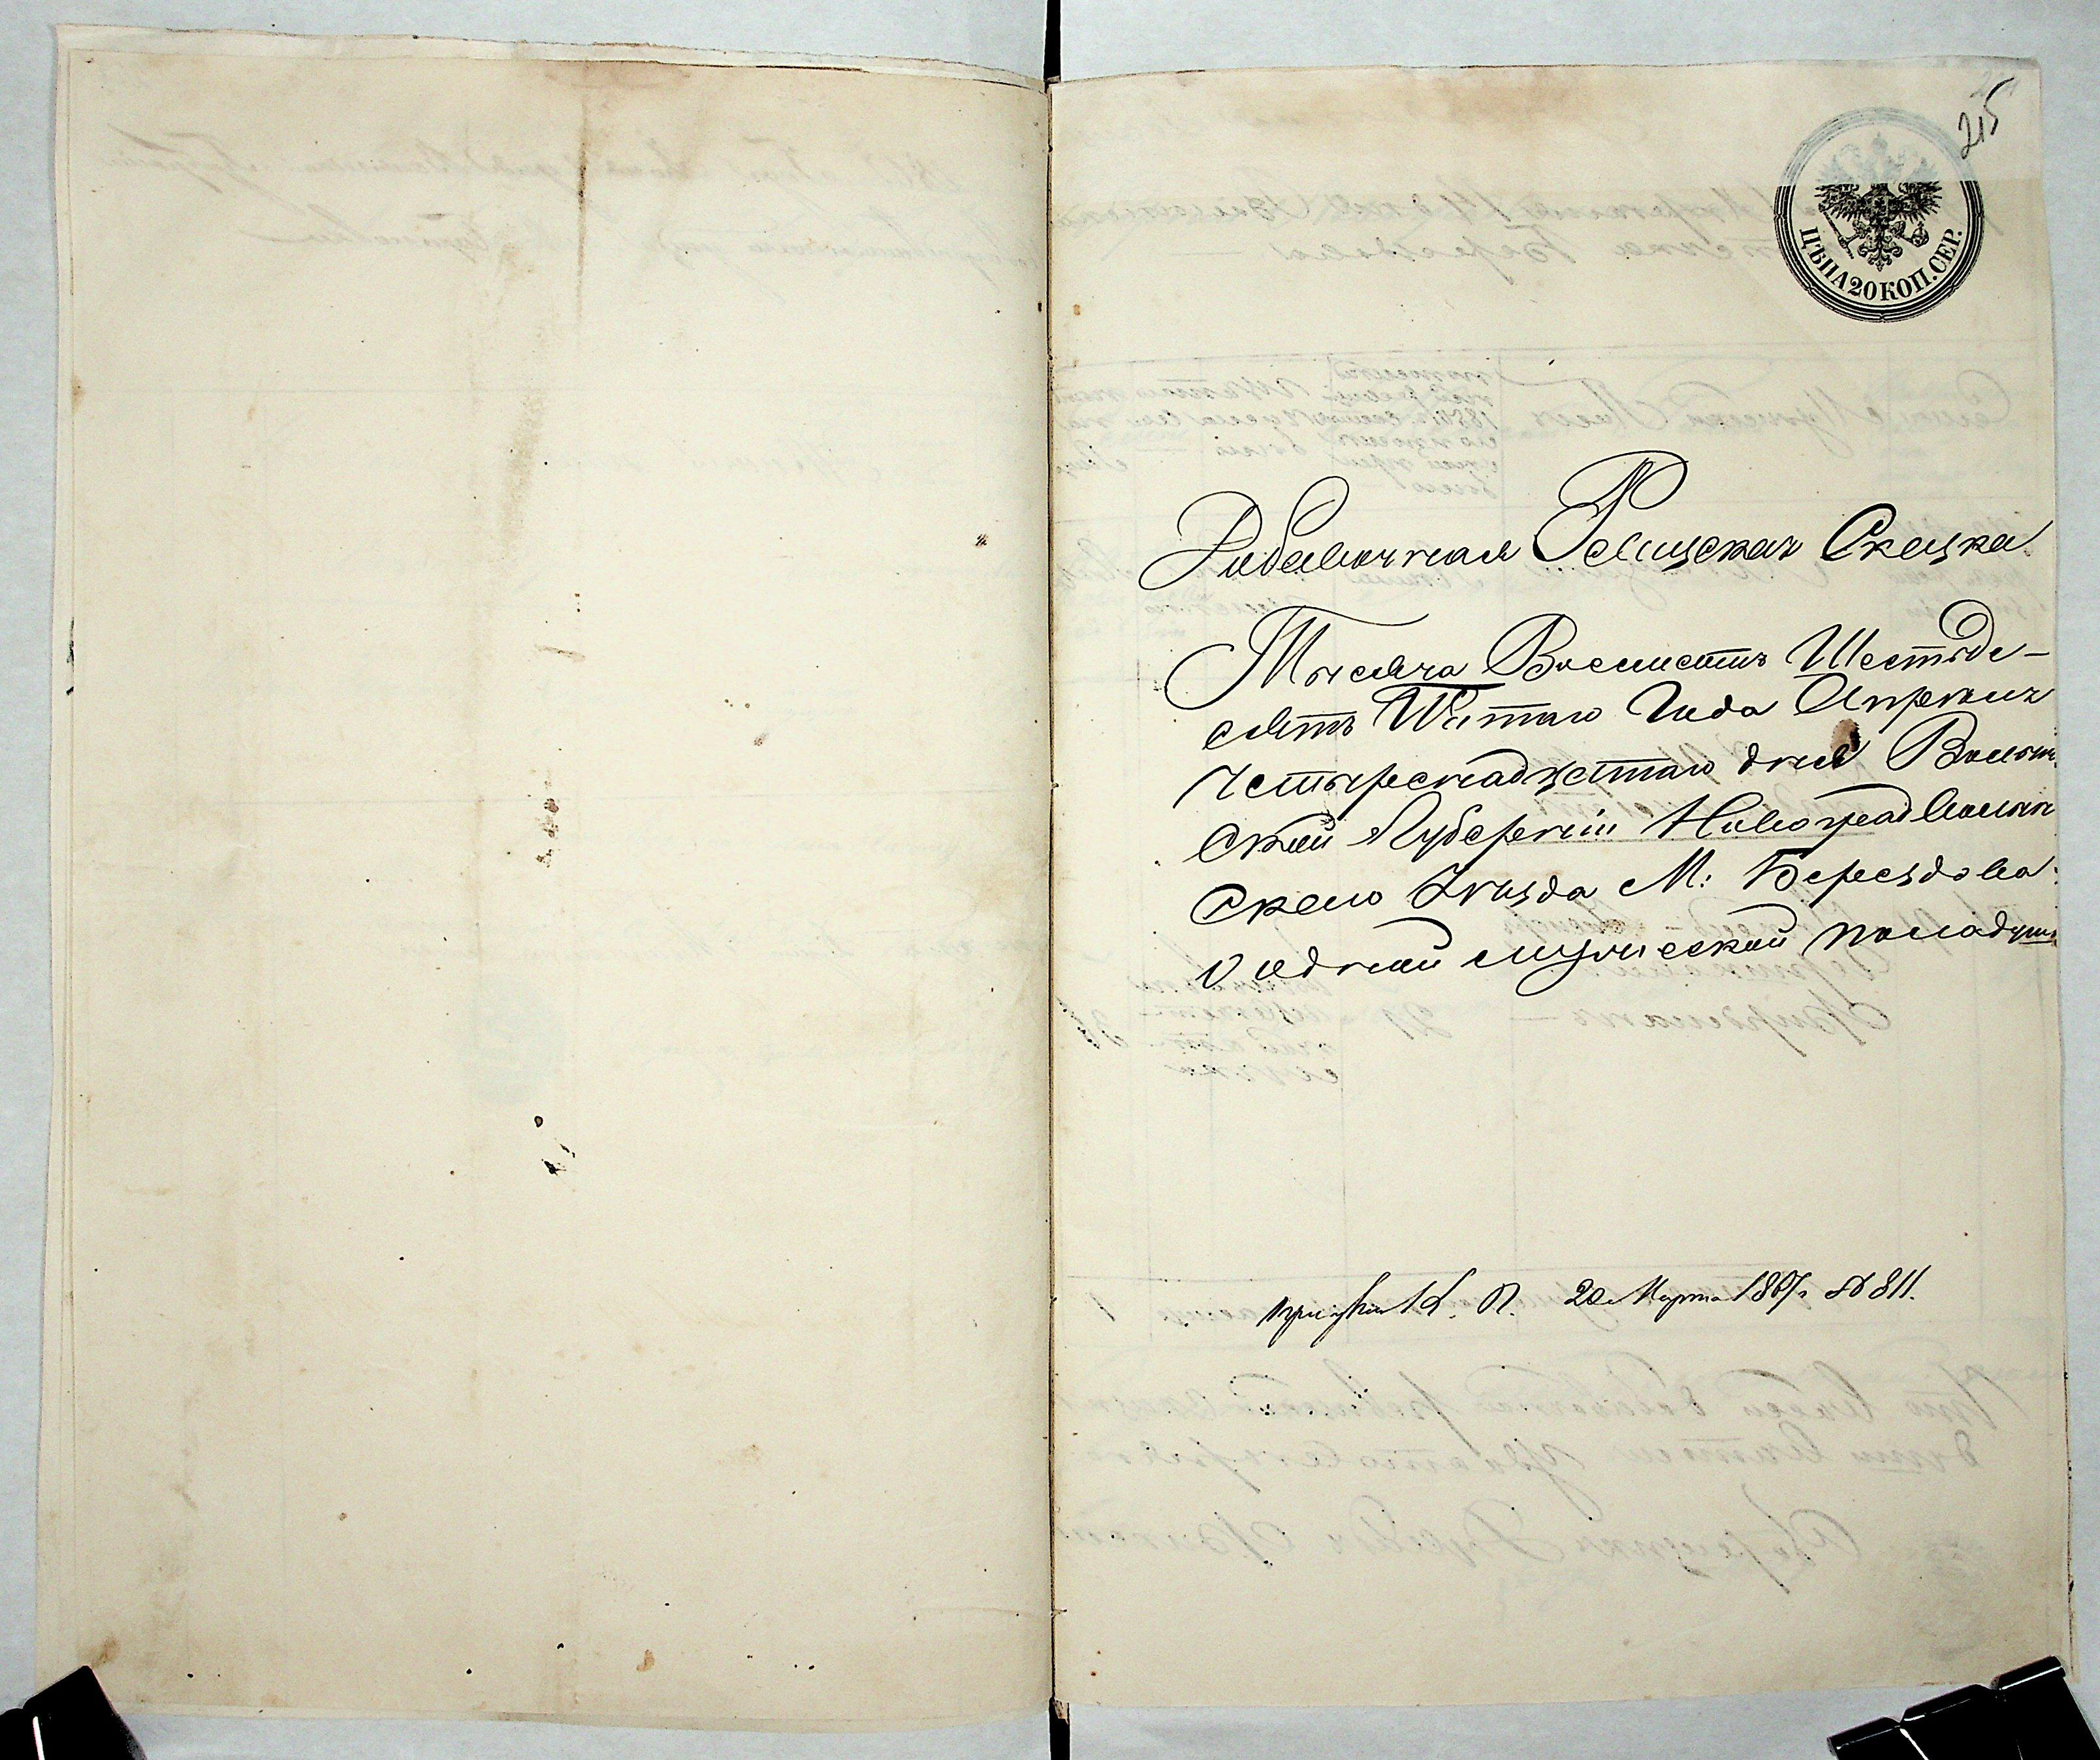 215
ЦѢНА 20 КОП. СЕР.
Добавочная Ревизская Сказка
Тысяча Восемсотъ Шестьде-
сятъ Пятаго Года Апреля
четырнадцатаго дня Волын
ской Губерніи Новоградволын
скаго Уѣзда М: Берездова
о одной мужеской пола души
20 Марта 1867 № 811.